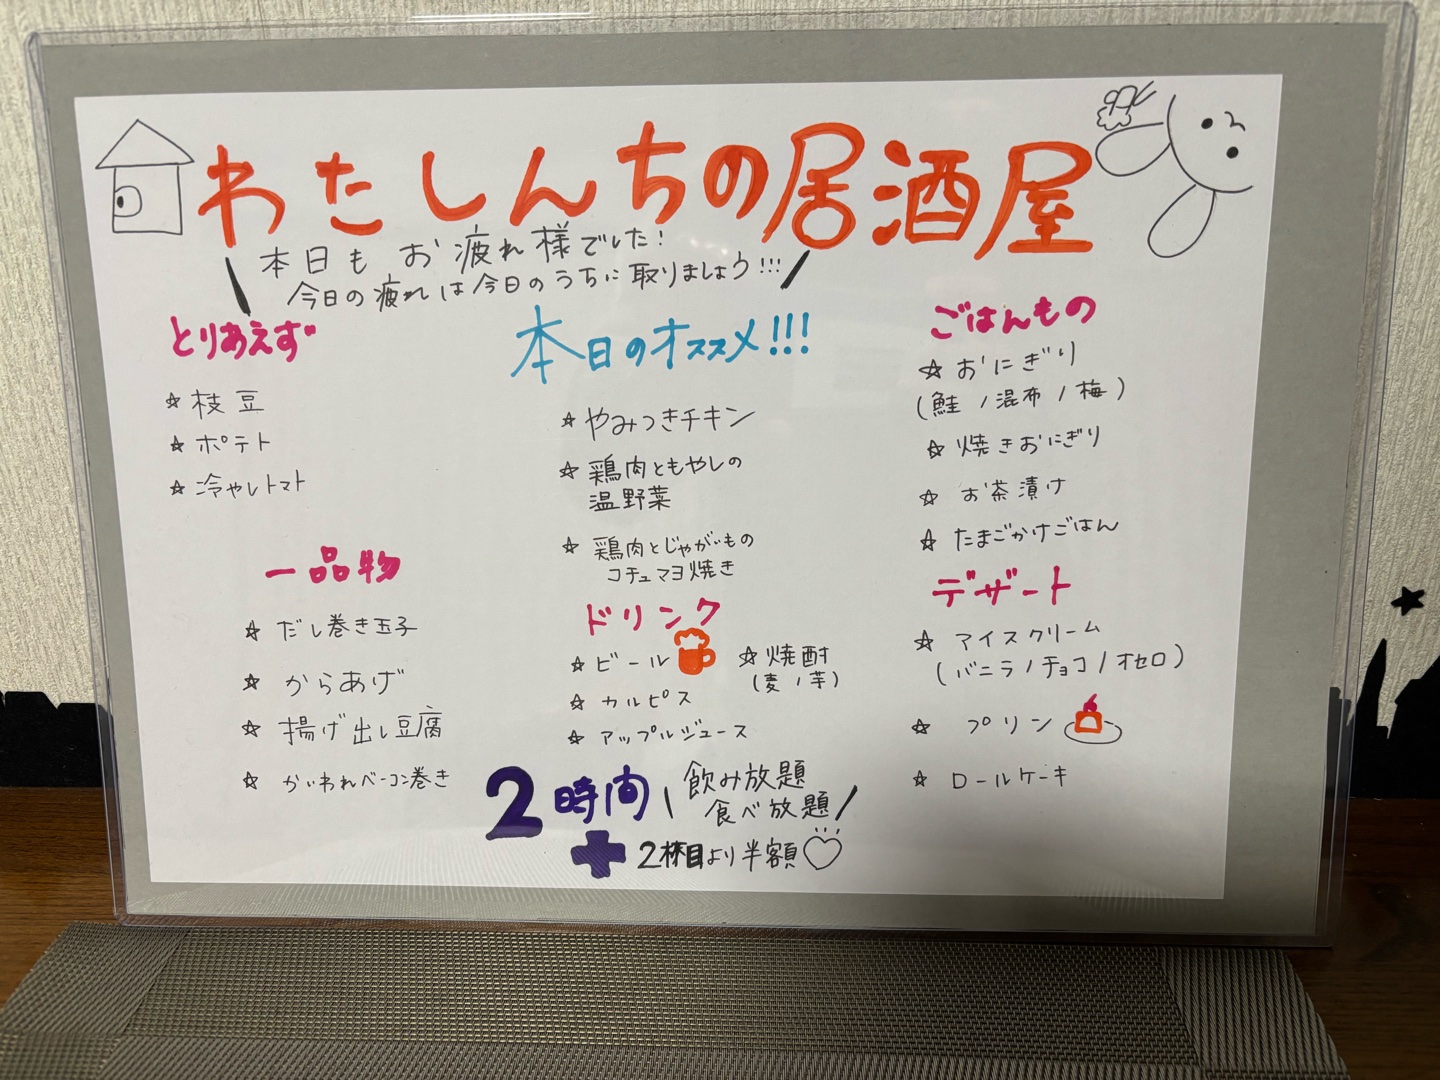 わたしんちの居酒屋
本日もお疲れ様でした!
今日の疲れは今日のうちに取りましょう!!!
とりあえず
☆枝豆
☆ポテト
☆冷やしトマト
一品物
☆だし巻き玉子
☆からあげ
☆揚げ出し豆腐
☆かいわれベーコン巻き
本日のオススメ!!!
☆やみつきチキン
☆鶏肉ともやしの
温野菜
☆鶏肉とじゃがいもの
コチュマヨ焼き
ドリンク
☆ビール
☆焼酎
(麦/芋)
☆カルピス
☆アップルジュース
ごはんもの
☆おにぎり
(鮭/混布/梅)
☆焼きおにぎり
☆お茶漬け
☆たまごかけごはん
デザート
☆アイスクリーム
(バニラ/チョコ/オセロ)
☆プリン
☆ロールケーキ
2時間\飲み放題
食べ放題/
+2杯目より半額♡